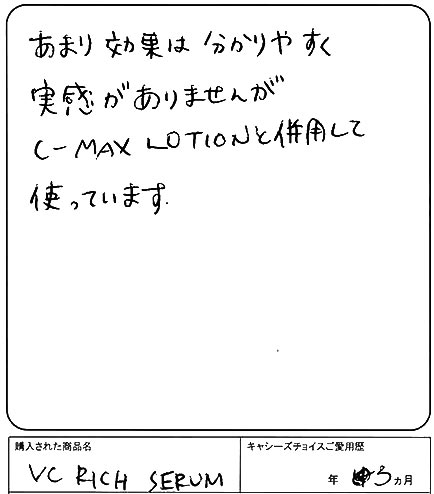 あまり効果は分かりやすく
実感がありませんが
C-MAX LOTIONと併用して
使っています.
購入された商品名
キャシーズチョイスご愛用歴
VC RICH SERUM
年 3ヵ月